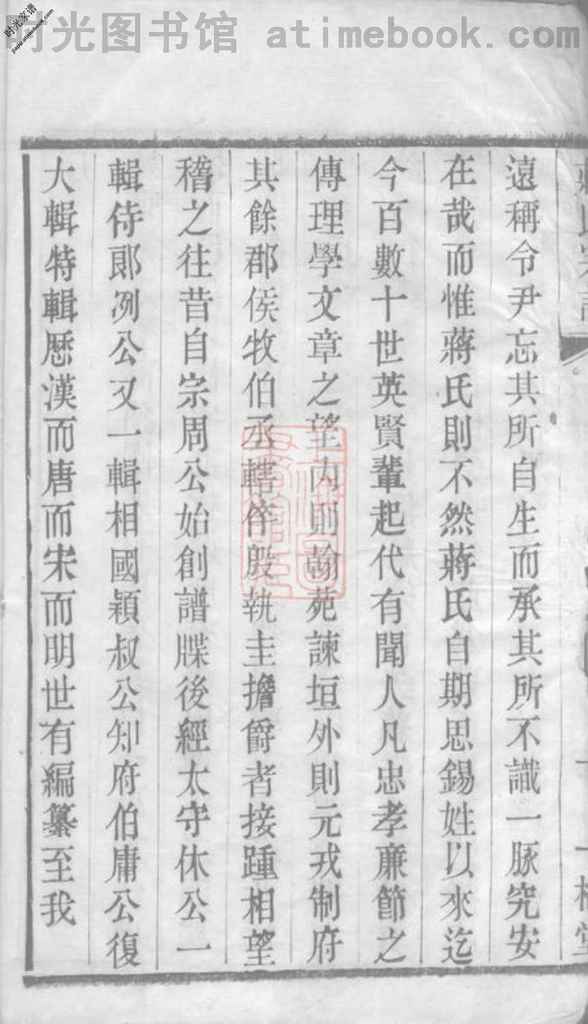 时光图书馆 atimebook.com
时光家谱
遠稱令尹忘其所自生而承其所不識一脉究安
在哉而惟蔣氏則不然蔣氏自期思錫姓以來迄
今百數十世英賢輩起代有聞人凡忠孝廉節之
傳理學文章之望内則翰苑諫垣外則元戎制府
其餘郡侯牧伯丞轄倅殷執圭擔爵者接踵相望
稽之往昔自宗周公始創譜牒後經太守休公一
輯侍郎冽公又一輯相國穎叔公知府伯庸公復
大輯特輯歷漢而唐而宋而明世有編纂至我